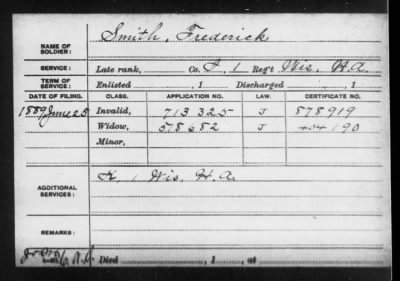 NAME OF SOLDIER: Smith, Frederick
SERVICE: Late rank, Co. I, 1 Reg't Wis. H.A.
TERM OF SERVICE: Enlisted , 1 Discharged , 1
DATE OF FILING. CLASS. APPLICATION NO. LAW. CERTIFICATE NO.
1889 June 25 Invalid, 713 325 J 878919
Widow, 578 682 J 190
Minor,
ADDITIONAL SERVICES: K. 1 Wis. H. A.
REMARKS:
Died , 1 , at